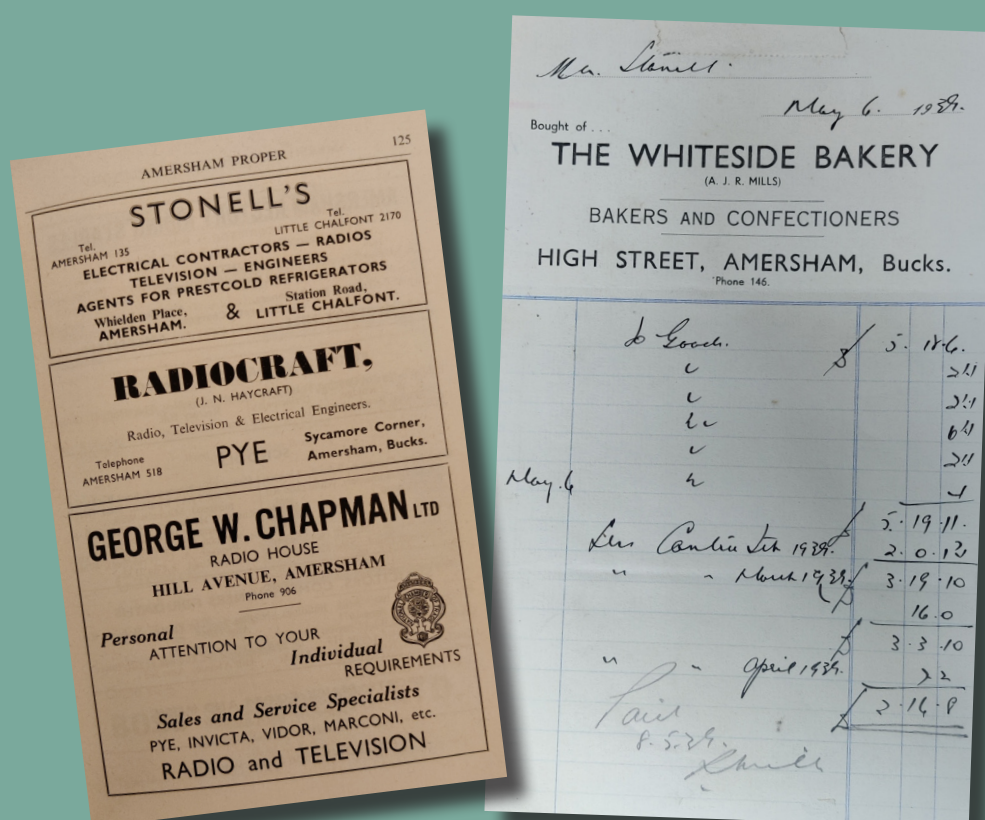 AMERSHAM PROPER 125
STONELL'S
Tel. Tel.
AMERSHAM 135 LITTLE CHALFONT 2170
ELECTRICAL CONTRACTORS — RADIOS
TELEVISION — ENGINEERS
AGENTS FOR PRESTCOLD REFRIGERATORS
Whielden Place, & Station Road,
AMERSHAM. LITTLE CHALFONT.
RADIOCRAFT,
(J. N. HAYCRAFT)
Radio, Television & Electrical Engineers.
Telephone PYE Sycamore Corner,
AMERSHAM 518 Amersham, Bucks.
GEORGE W. CHAPMAN LTD
RADIO HOUSE
HILL AVENUE, AMERSHAM
Phone 906
Personal
ATTENTION TO YOUR
Individual
REQUIREMENTS
Sales and Service Specialists
PYE, INVICTA, VIDOR, MARCONI, etc.
RADIO and TELEVISION
Stonell.
May 6. 1939.
Bought of . . .
THE WHITESIDE BAKERY
(A. J. R. MILLS)
BAKERS AND CONFECTIONERS
HIGH STREET, AMERSHAM, Bucks.
'Phone 146.
To Goods. 5. 18.6.
May. 6
5. 19. 11.
Less 1939. 2. 0.
" " March 1939. 3. 19. 10
16. 0
3. 3. 10
" " April 1939.
Paid
8. 5. 39.